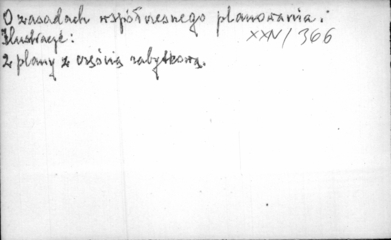 O zasadach współczesnego planowania:
Ilustracje:
XXIV/366
2 plany z częścią zabytkową.